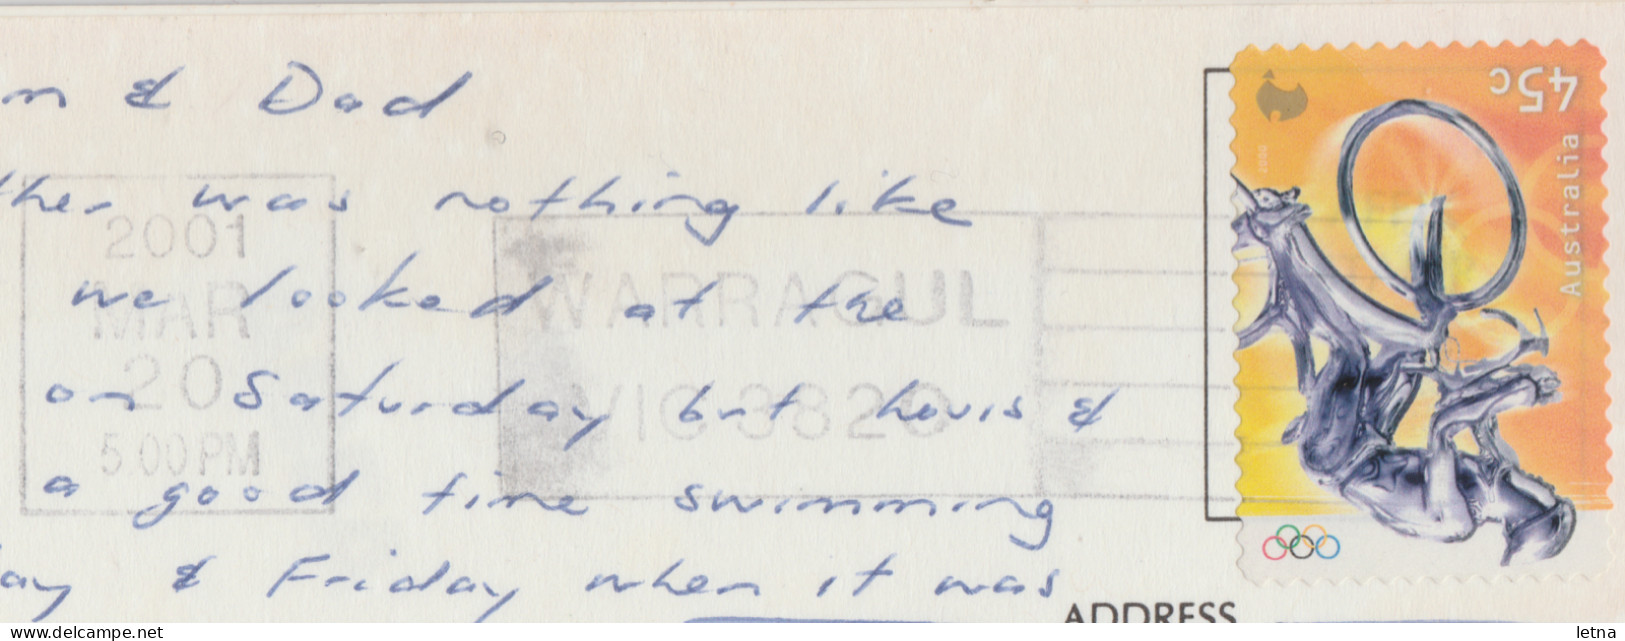 m & Dad
ther was nothing like
we looked at the
on Saturday but Louis &
a good time swimming
ay & Friday when it was
2001
MAR
20
5 00 PM
WARRAGUL
VIC 3820
45c
Australia
2000
ADDRESS
letna